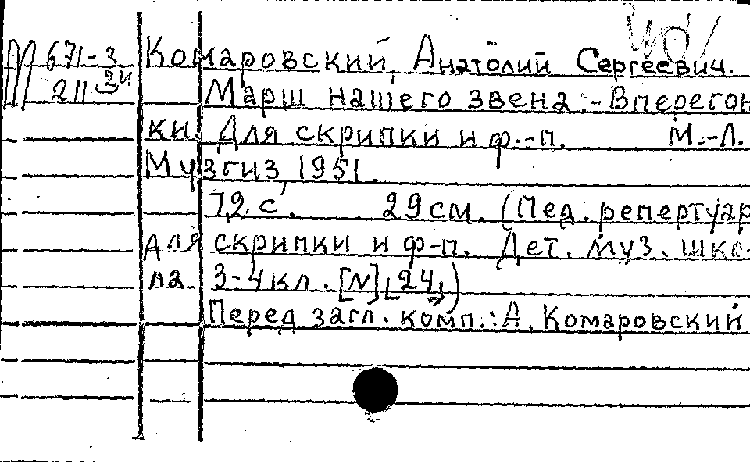 П 671-3 Комаровский, Анатолий Сергеевич.
211 24 Марш нашего звена.-Вперегон
ки. Для скрипки и ф.-п. М.-Л.
Музгиз, 1951.
12 с. 29см. (Пед. репертуар
для скрипки и ф-п. Дет. муз. шко-
ла. 3-4 кл. [N] [24])
Перед загл. комп.: А. Комаровский